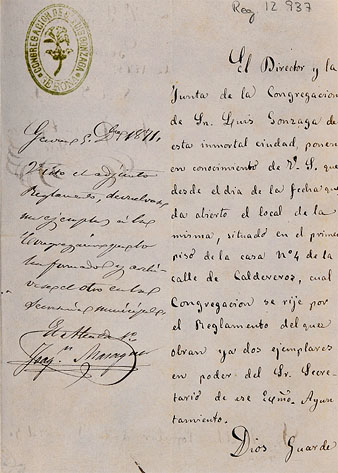 Reg 12.937
CONGREGACION DE S. LUIS GONZAGA
El Director y la
Junta de la Congregacion
de Sn. Luis Gonzaga de
esta inmortal ciudad, ponen
en conocimiento de V. S. que
desde el dia de la fecha que
da abierto el local de la
misma, situado en el primer
piso de la casa Nº 4 de la
calle de Caldereros, cual
Congregacion se rije por
el Reglamento del que
obran ya dos ejemplares
en poder del Sr. Secre-
tario de ese Exmo. Ayun
tamiento.
Dios Guarde
Gerona 5 1871.
Visto el adjunto
Reglamento, devuelvase
un ejemplar a la
Congregacion
informado y archi-
vese el otro en la
Secretaria municipal
El Alcalde 1º